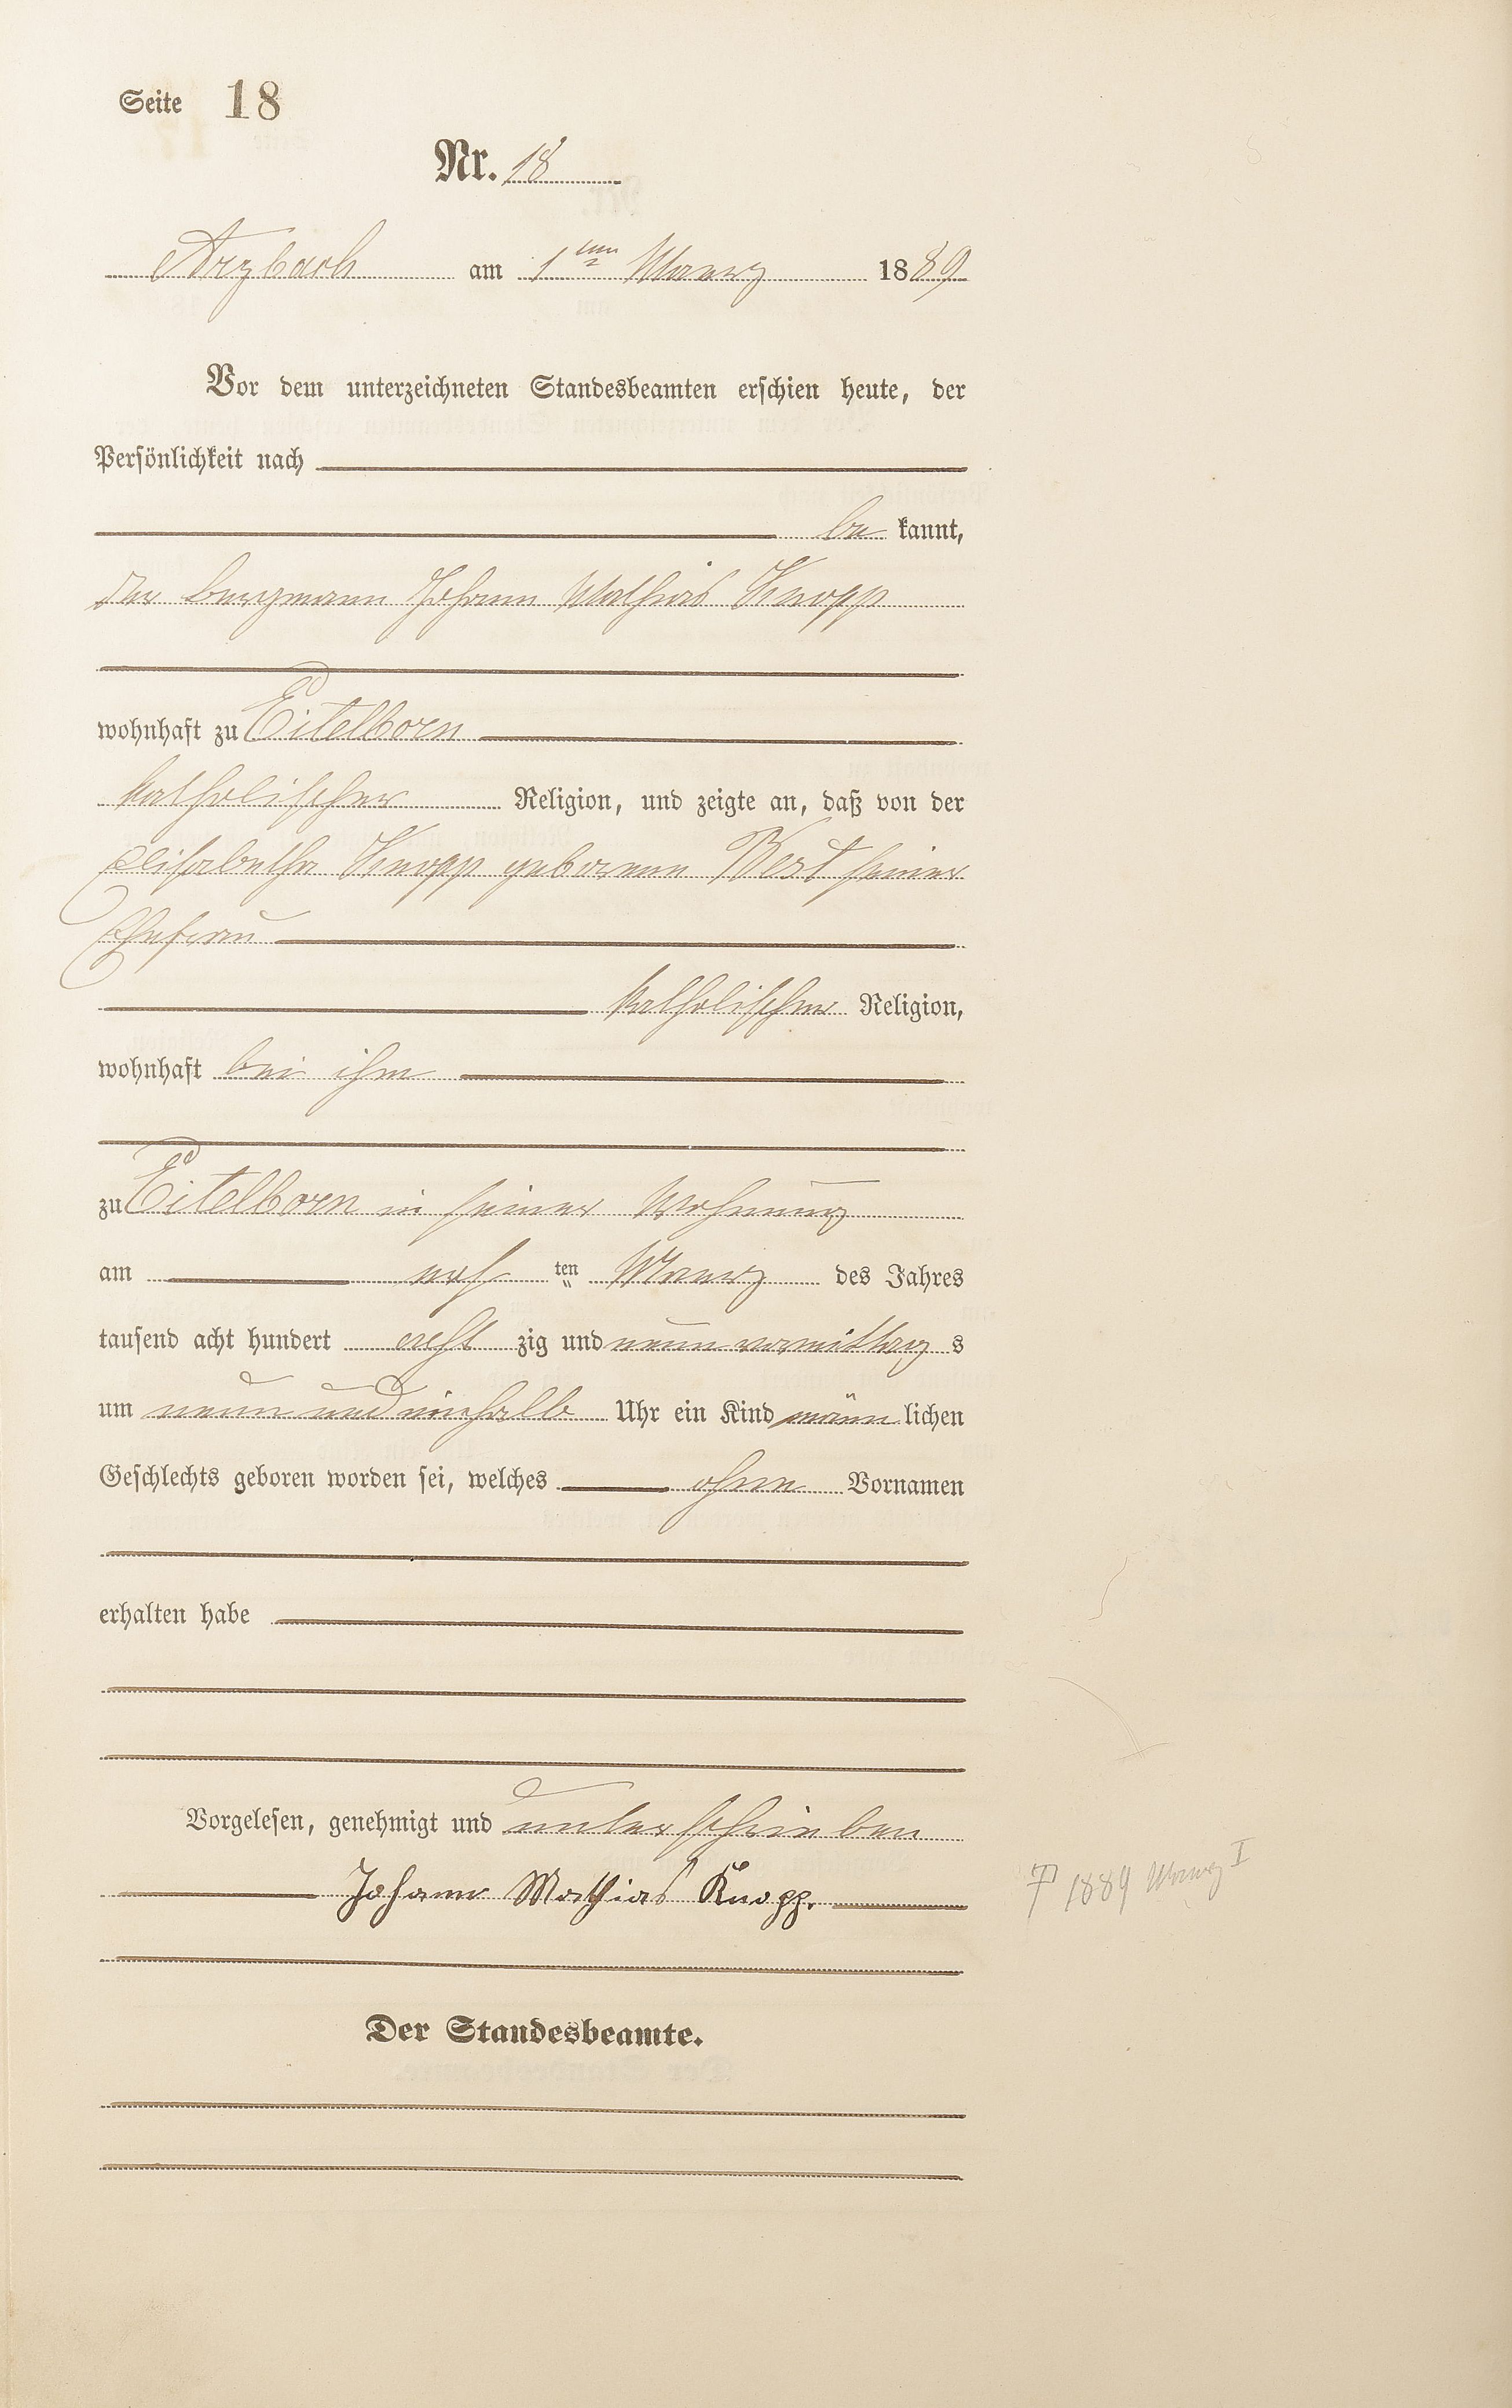 Seite 18
Nr. 18
Arzbach am 1ten Maerz 1889
Vor dem unterzeichneten Standesbeamten erschien heute, der
Persönlichkeit nach
be kannt,
der Bergmann Johann Mathias Knopp
wohnhaft zu Eitelborn
katholischer Religion, und zeigte an, daß von der
Elisabetha Knopp geborenen Best seiner
Ehefrau
katholischer Religion,
wohnhaft bei ihm
zu Eitelborn in seiner Wohnung
am ten Maerz des Jahres
tausend acht hundert acht zig und neun vormittag s
um neun und einhalb Uhr ein Kind männ lichen
Geschlechts geboren worden sei, welches ohne Vornamen
erhalten habe
Vorgelesen, genehmigt und unterschrieben
Johann Mathias Knopp.
1889 Maerz I
Der Standesbeamte.